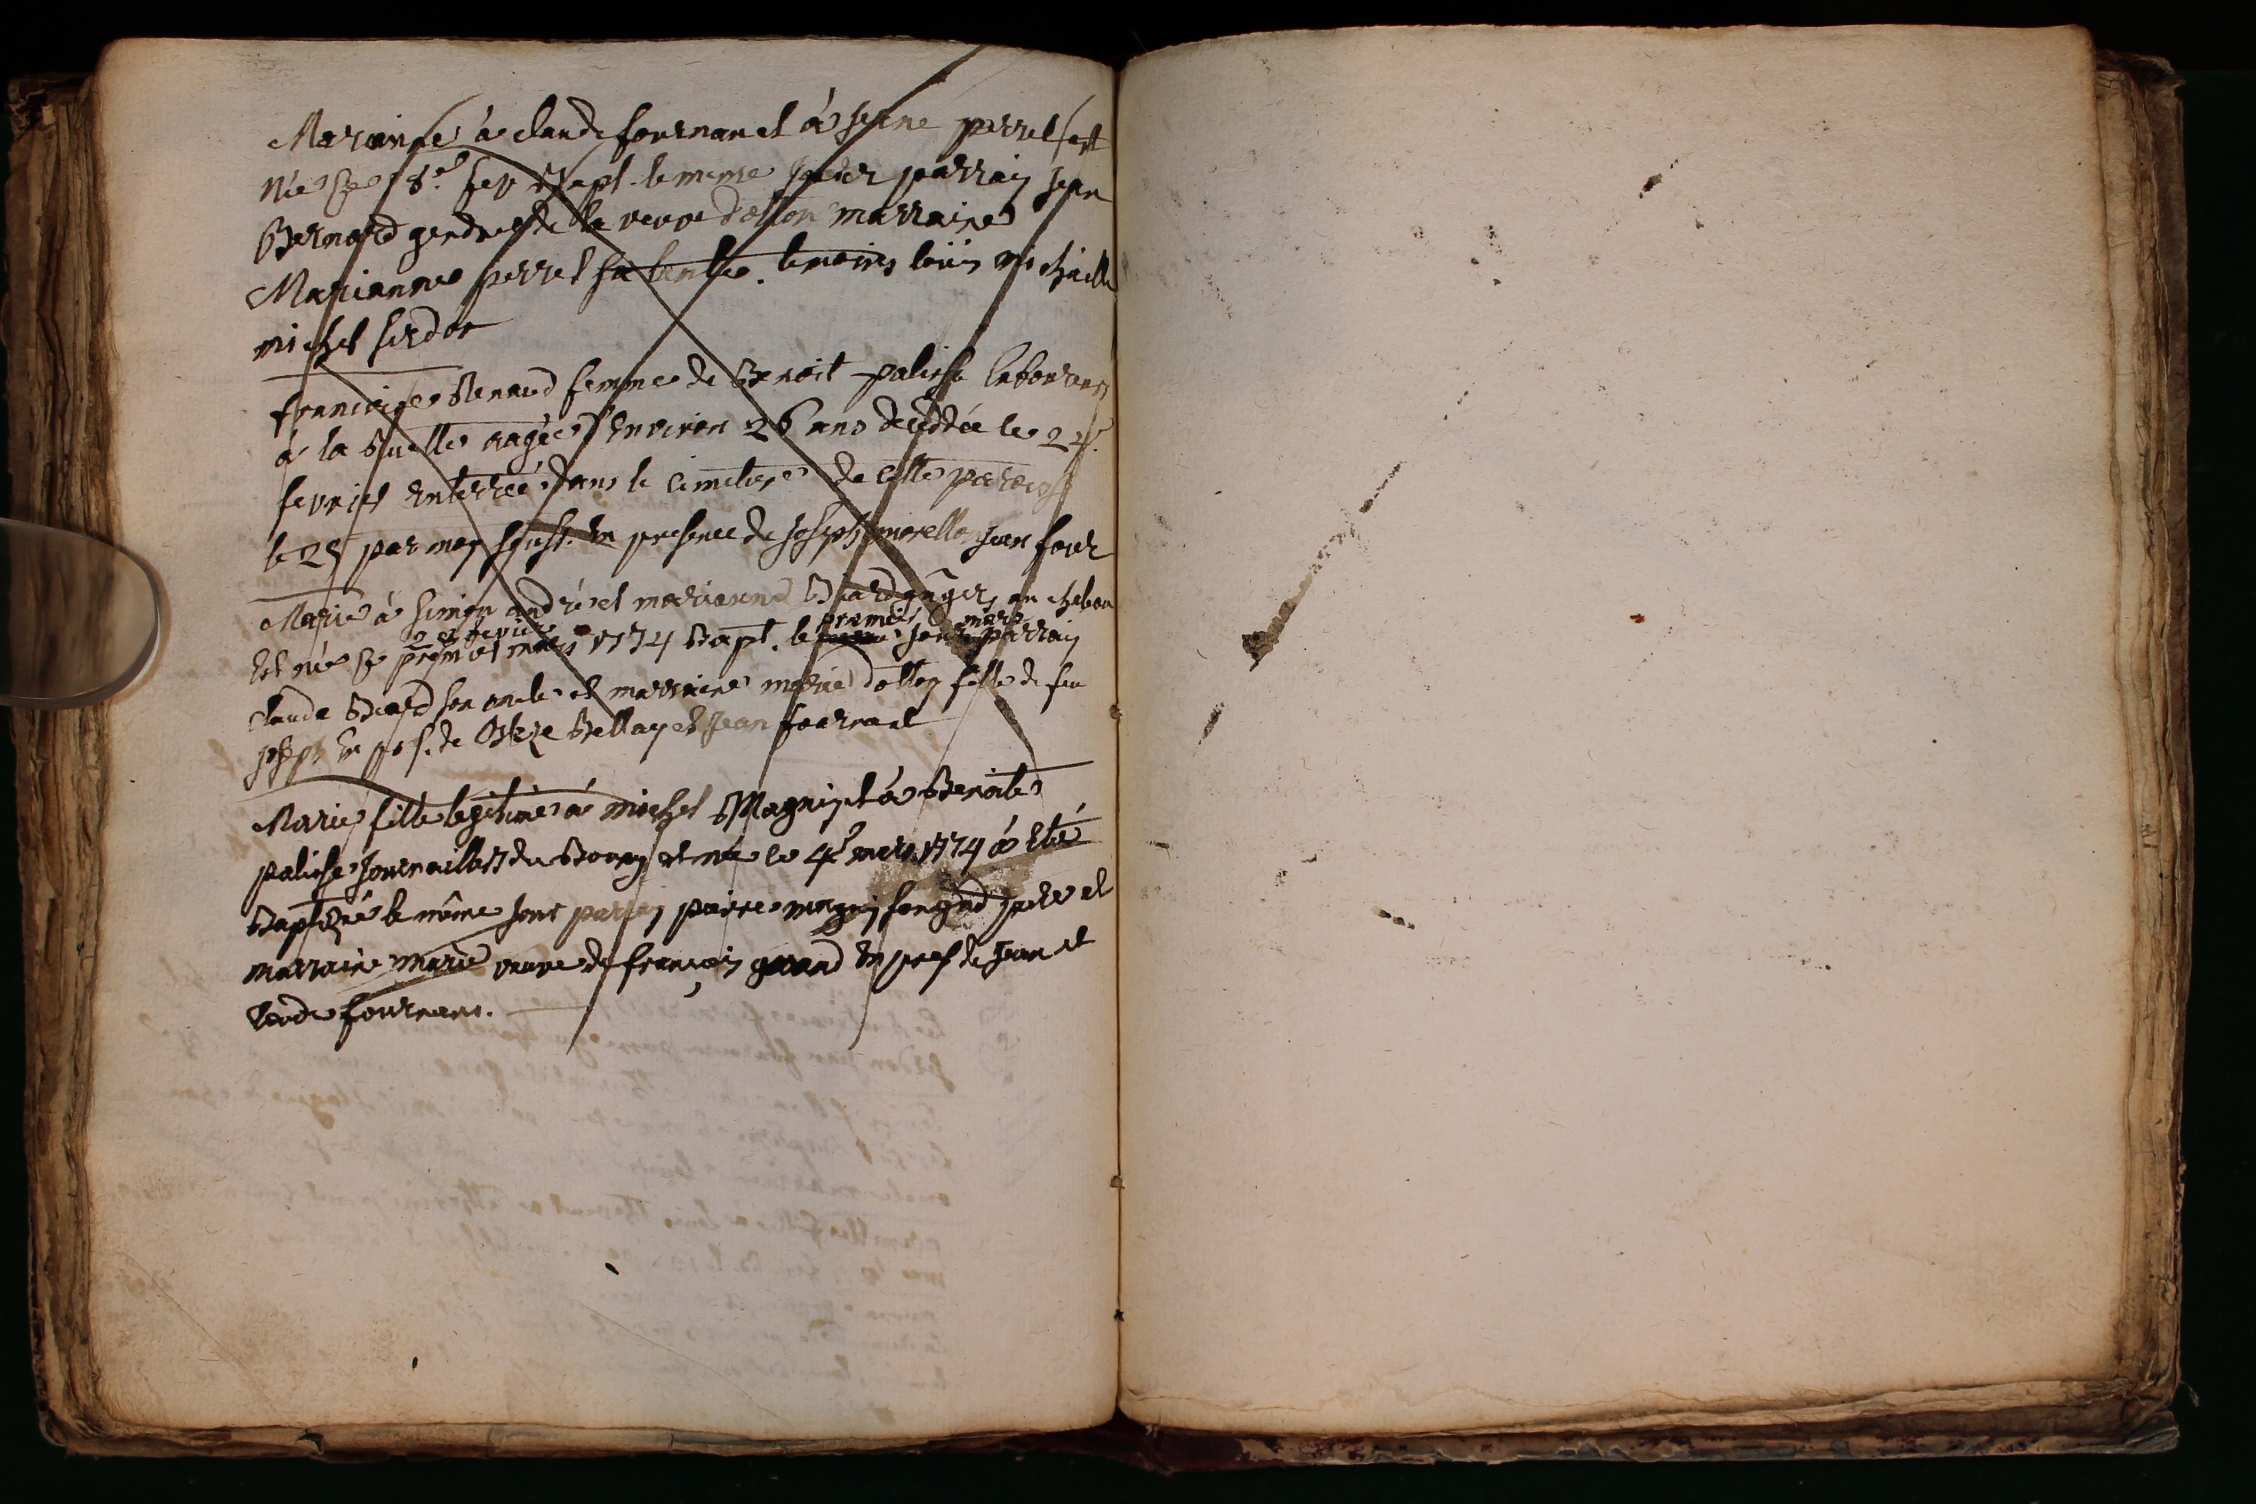 Marianne à claude fournan et à jeane perret est
née le 8e fev Bapt. le meme jour parrain jean
Bernard gendre de la veuve dollon marraine
Marianne perret sa tante. temoins loüis michaille
michel ferdot
francoise Benaud femme de Benoit palisse laboureur
à la Buelle aagée d'environ 26 ans decedée le 24e
fevrier enterrée dans le cimetiere de cette paroisse
le 25 par moy en presence de joseph morelle jean four
Marie à simon andre et marianne Biard au
24 fevrier premier mars
est née le premier mars 1774 Bapt. le jour parrain
claude Biard son oncle et marraine marie dollon fille de feu
joseph en pres. de Bellay et jean fournan
Marie fille legitime à michel Magnin et à Benoite
palisse journailler du Bourg et née le 4e mars 1774 à eté
Baptizée le même jour parrain pierre magnin son grand pere et
marraine marie veuve de françois en pres de jean et
claude fournans.